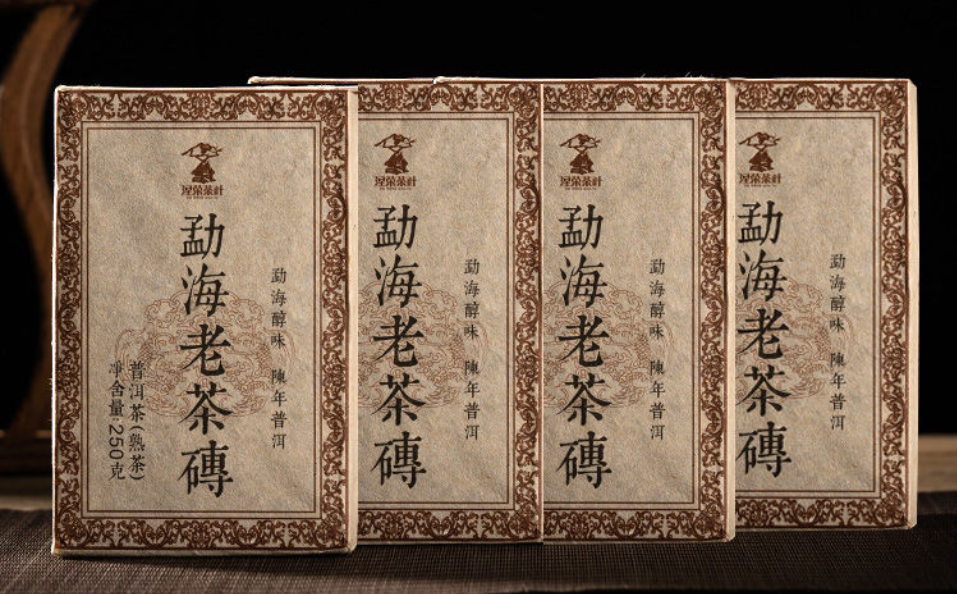 涅荣茶社
勐海老茶磚
勐海醇味 陳年普洱
普洱茶(熟茶)
净含量:250克
涅荣茶社
勐海老茶磚
勐海醇味 陳年普洱
涅荣茶社
勐海老茶磚
勐海醇味 陳年普洱
涅荣茶社
勐海老茶磚
勐海醇味 陳年普洱